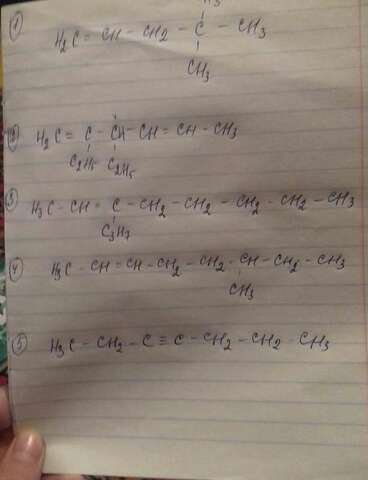 H3
① H2C = CH - CH2 - C - CH3
CH3
② H2C = C - CH - CH = CH - CH3
C2H5 C2H5
③ H3C - CH = C - CH2 - CH2 - CH2 - CH2 - CH3
C3H7
④ H3C - CH = CH - CH2 - CH2 - CH - CH2 - CH3
CH3
⑤ H3C - CH2 - C ≡ C - CH2 - CH2 - CH3